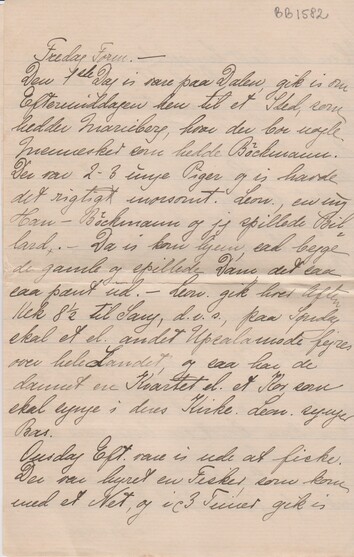 BB1582
Fredag Form. —
Den 1ste Dag vi vare paa Dalen, gik vi om
Eftermiddagen hen til et Sted, som
hedder Marieberg, hvor der bor nogle
Mennesker som hedde Böckmann.
Der var 2-3 unge Piger og vi havde
det rigtigt morsomt. Leon., en ung
Han - Böckmann og jeg spillede Bil-
lard. - Da vi kom hjem, sad begge
de gamle og spillede Dam, det saa
saa pænt ud. - Leon. gik hver Aften
Kl. 8½ til Sang, d.v.s., paa Søndag
skal et el. andet Upsalamøde fejres
over hele Landet, og saa har de
dannet en Kvartet el. et Kor som
skal synge i deres Kirke. Leon. synger
Bas.
Onsdag Eft. vare vi ude at fiske.
Der var hyret en Fisker, som kom
med et Net, og i 3 Timer gik vi